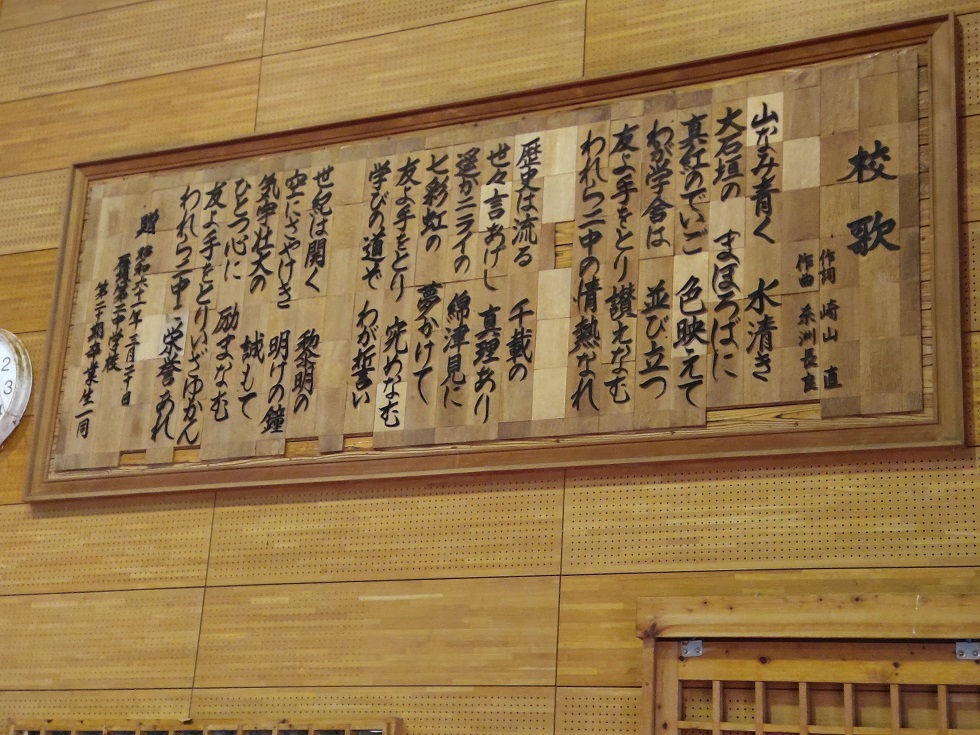 校歌
作詞 崎山 直
作曲 糸洲長良
山なみ青く 水清き
大石垣の まほろばに
真紅のでいご 色映えて
わが学舎は 並び立つ
友よ手をとり 讃えなむ
われら二中の情熱なれ
歴史は流る 千載の
世々言あげし 真理あり
遥かニライの 綿津見に
七彩虹の 夢かけて
友よ手をとり 究めなむ
学びの道ぞ わが誓い
世紀は開く 黎明の
空にさやけき 明けの鐘
気宇壮大の 誠もて
ひとつ心に 励まなむ
友よ手をとりいざゆかん
われら二中に栄誉あれ
贈 昭和六十一年三月二十日
石垣第二中学校
第二十期卒業生一同
2
3
4